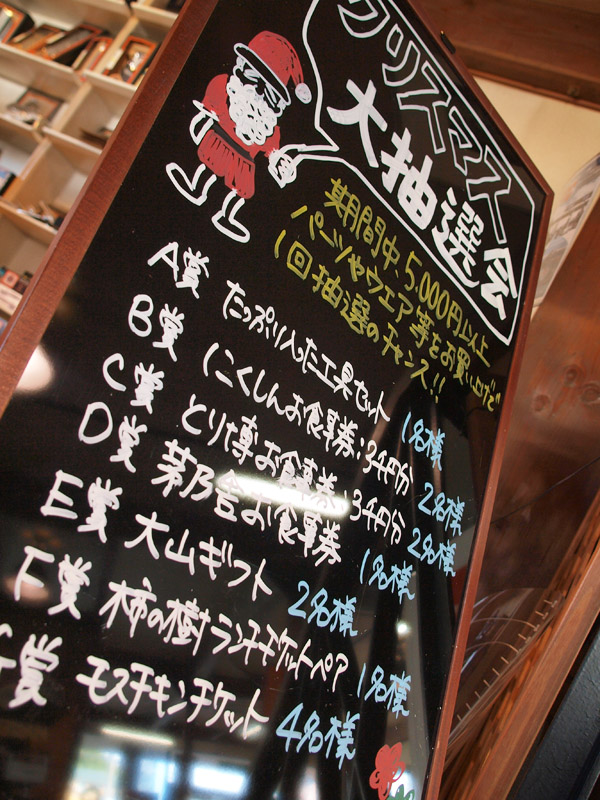 クリスマス
大抽選会
期間中、5,000円以上
パーツやウエア等をお買い上げで
1回抽選のチャンス!!
A賞 たっぷり入った工具セット 1名様
B賞 にくしんお食事券:3千円分 2名様
C賞 とり博お食事券:3千円分 2名様
D賞 茅乃舎お食事券 1名様
E賞 大山ギフト 2名様
F賞 柿の樹ランチチケットペア 1名様
G賞 モスチキンチケット 4名様